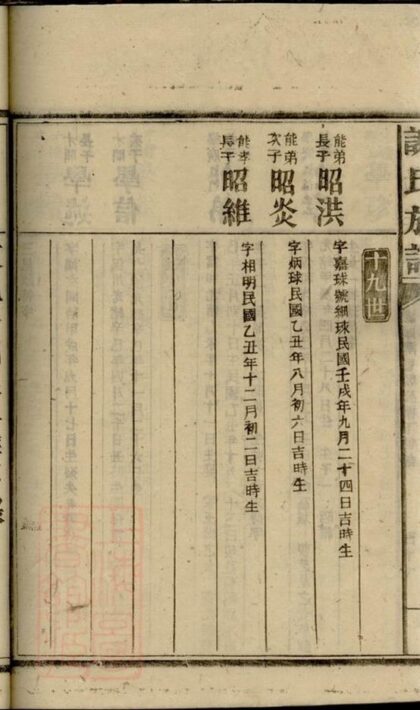 氏族譜
十九世
能弟長子 昭洪
字嘉球號糊球民國壬戌年九月二十四日吉時生
能弟次子 昭炎
字炳球民國乙丑年八月初六日吉時生
能孝長子 昭維
字相明民國乙丑年十二月初二日吉時生